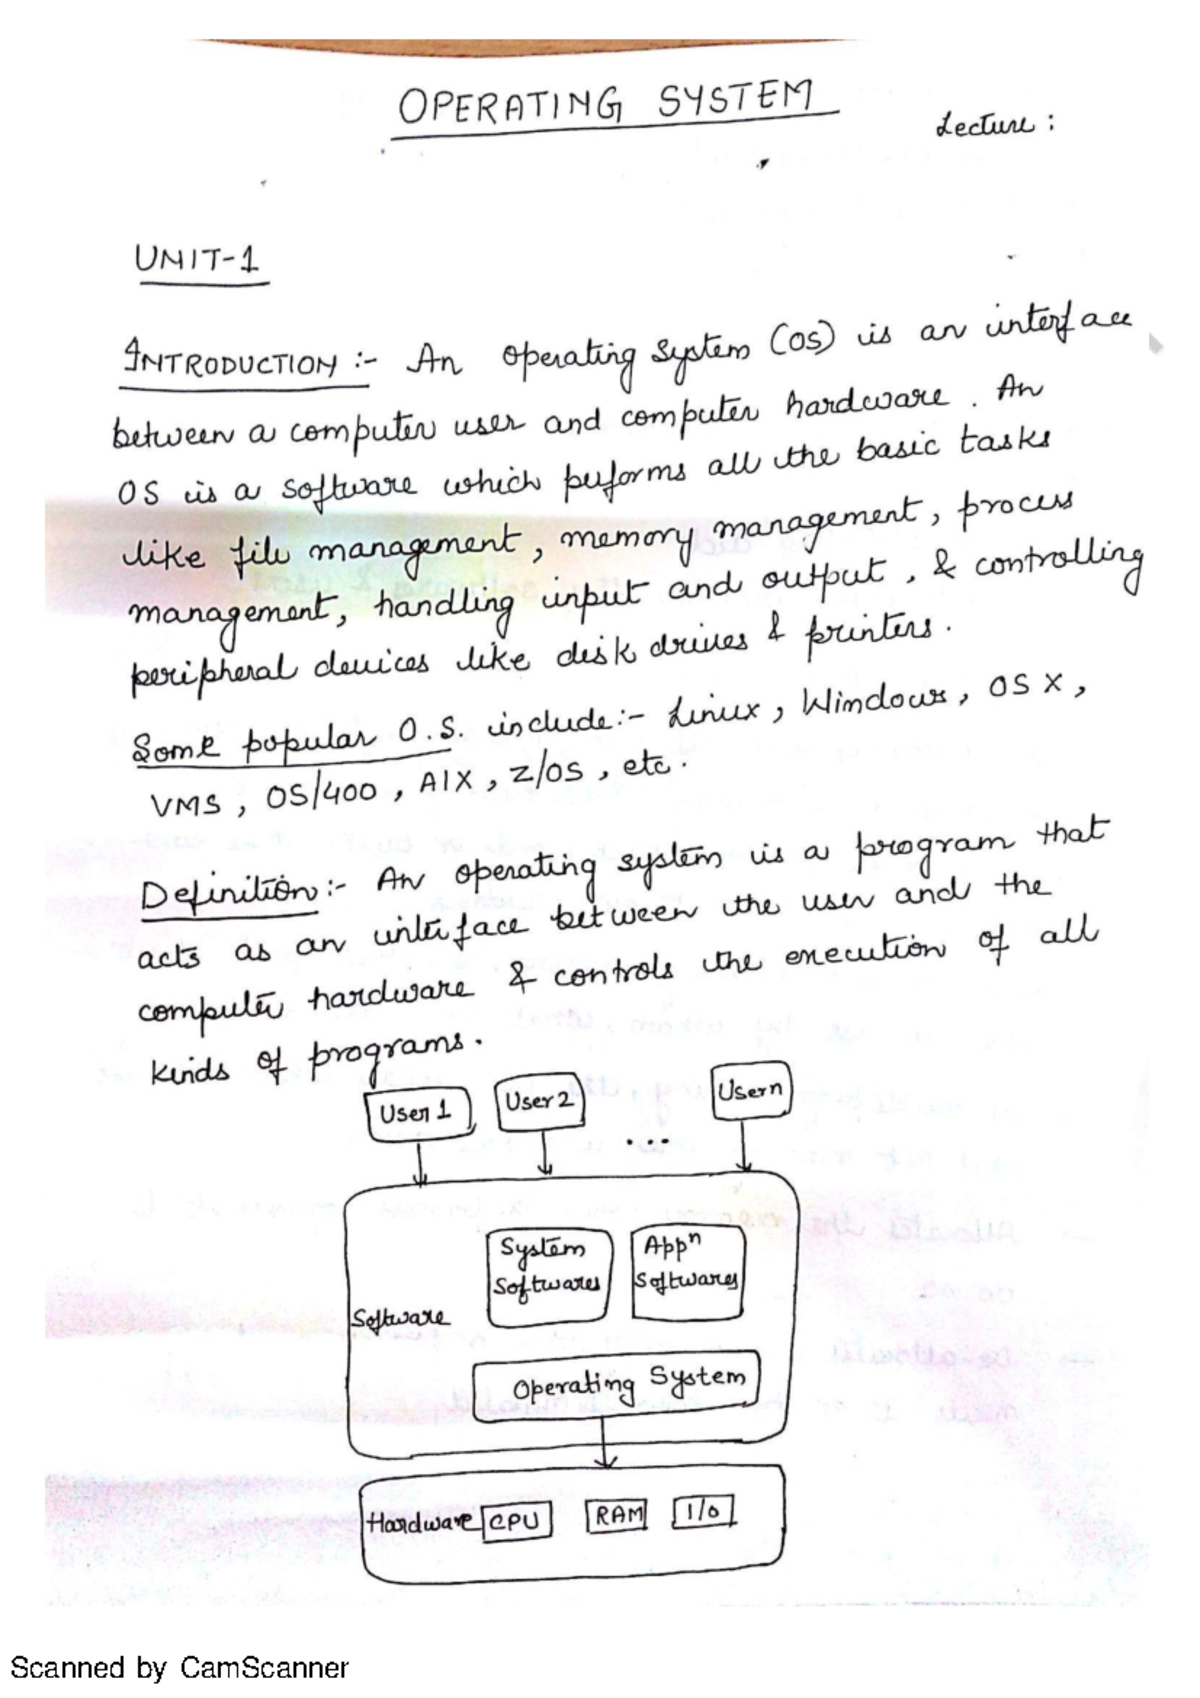 OPERATING SYSTEM
Lecture :
UNIT-1
INTRODUCTION :- An operating system (OS) is an interface
between a computer user and computer hardware. An
OS is a software which performs all the basic tasks
like file management, memory management, process
management, handling input and output, & controlling
peripheral devices like disk drives & printers.
Some popular O.S. include:- Linux, Windows, OS X,
VMS, OS/400, AIX, Z/OS, etc.
Definition:- An operating system is a program that
acts as an interface between the user and the
computer hardware & controls the execution of all
kinds of programs.
User 1 User 2 ... User n
System Appⁿ
Softwares Softwares
Software
Operating System
Hardware CPU RAM I/O
Scanned by CamScanner